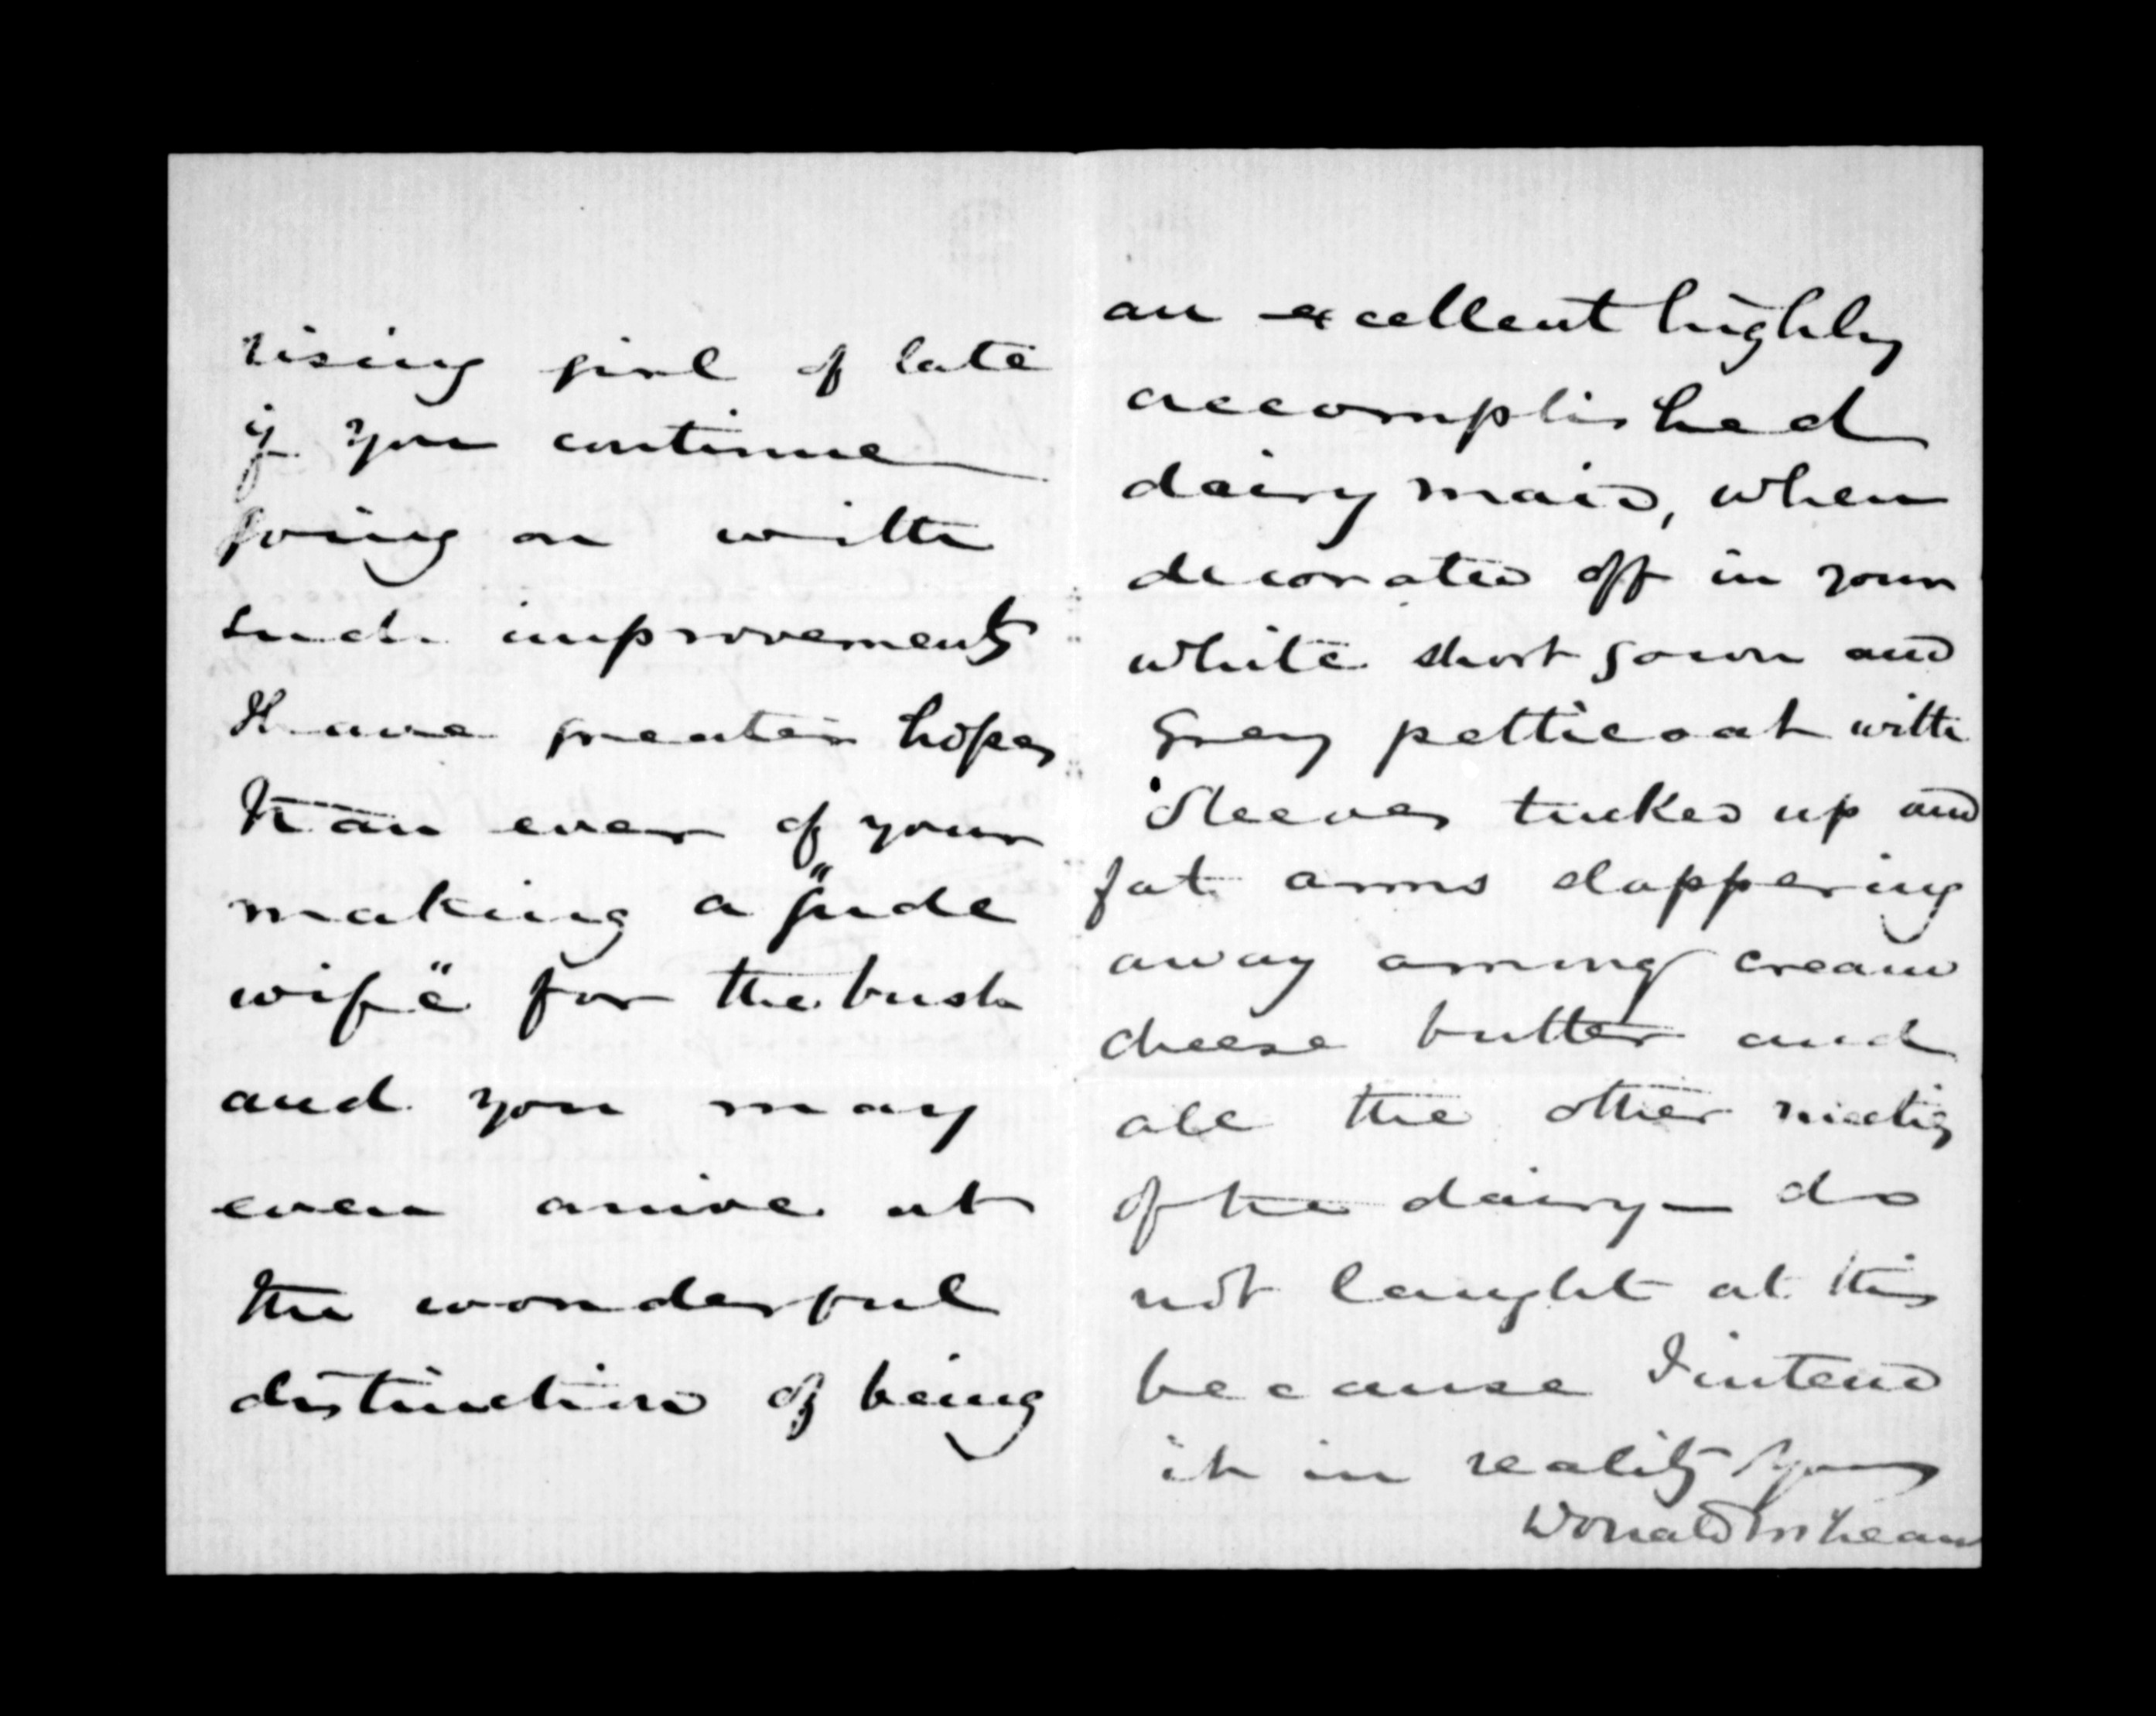 rising girl of late
if you continue
going on with
such improvements
I have greater hopes
than ever of your
making a "gude
wife" for the bush
and you may
even arrive at
the wonderful
distinction of being
an excellent highly
accomplished
dairy maid, when
decorated off in your
white short gown and
grey petticoat with
sleeves tucked up and
fat arms slappering
away among cream
cheese butter and
all the other
of the dairy — do
not laught at this
because I intend
it in reality Yours
Donald McLean